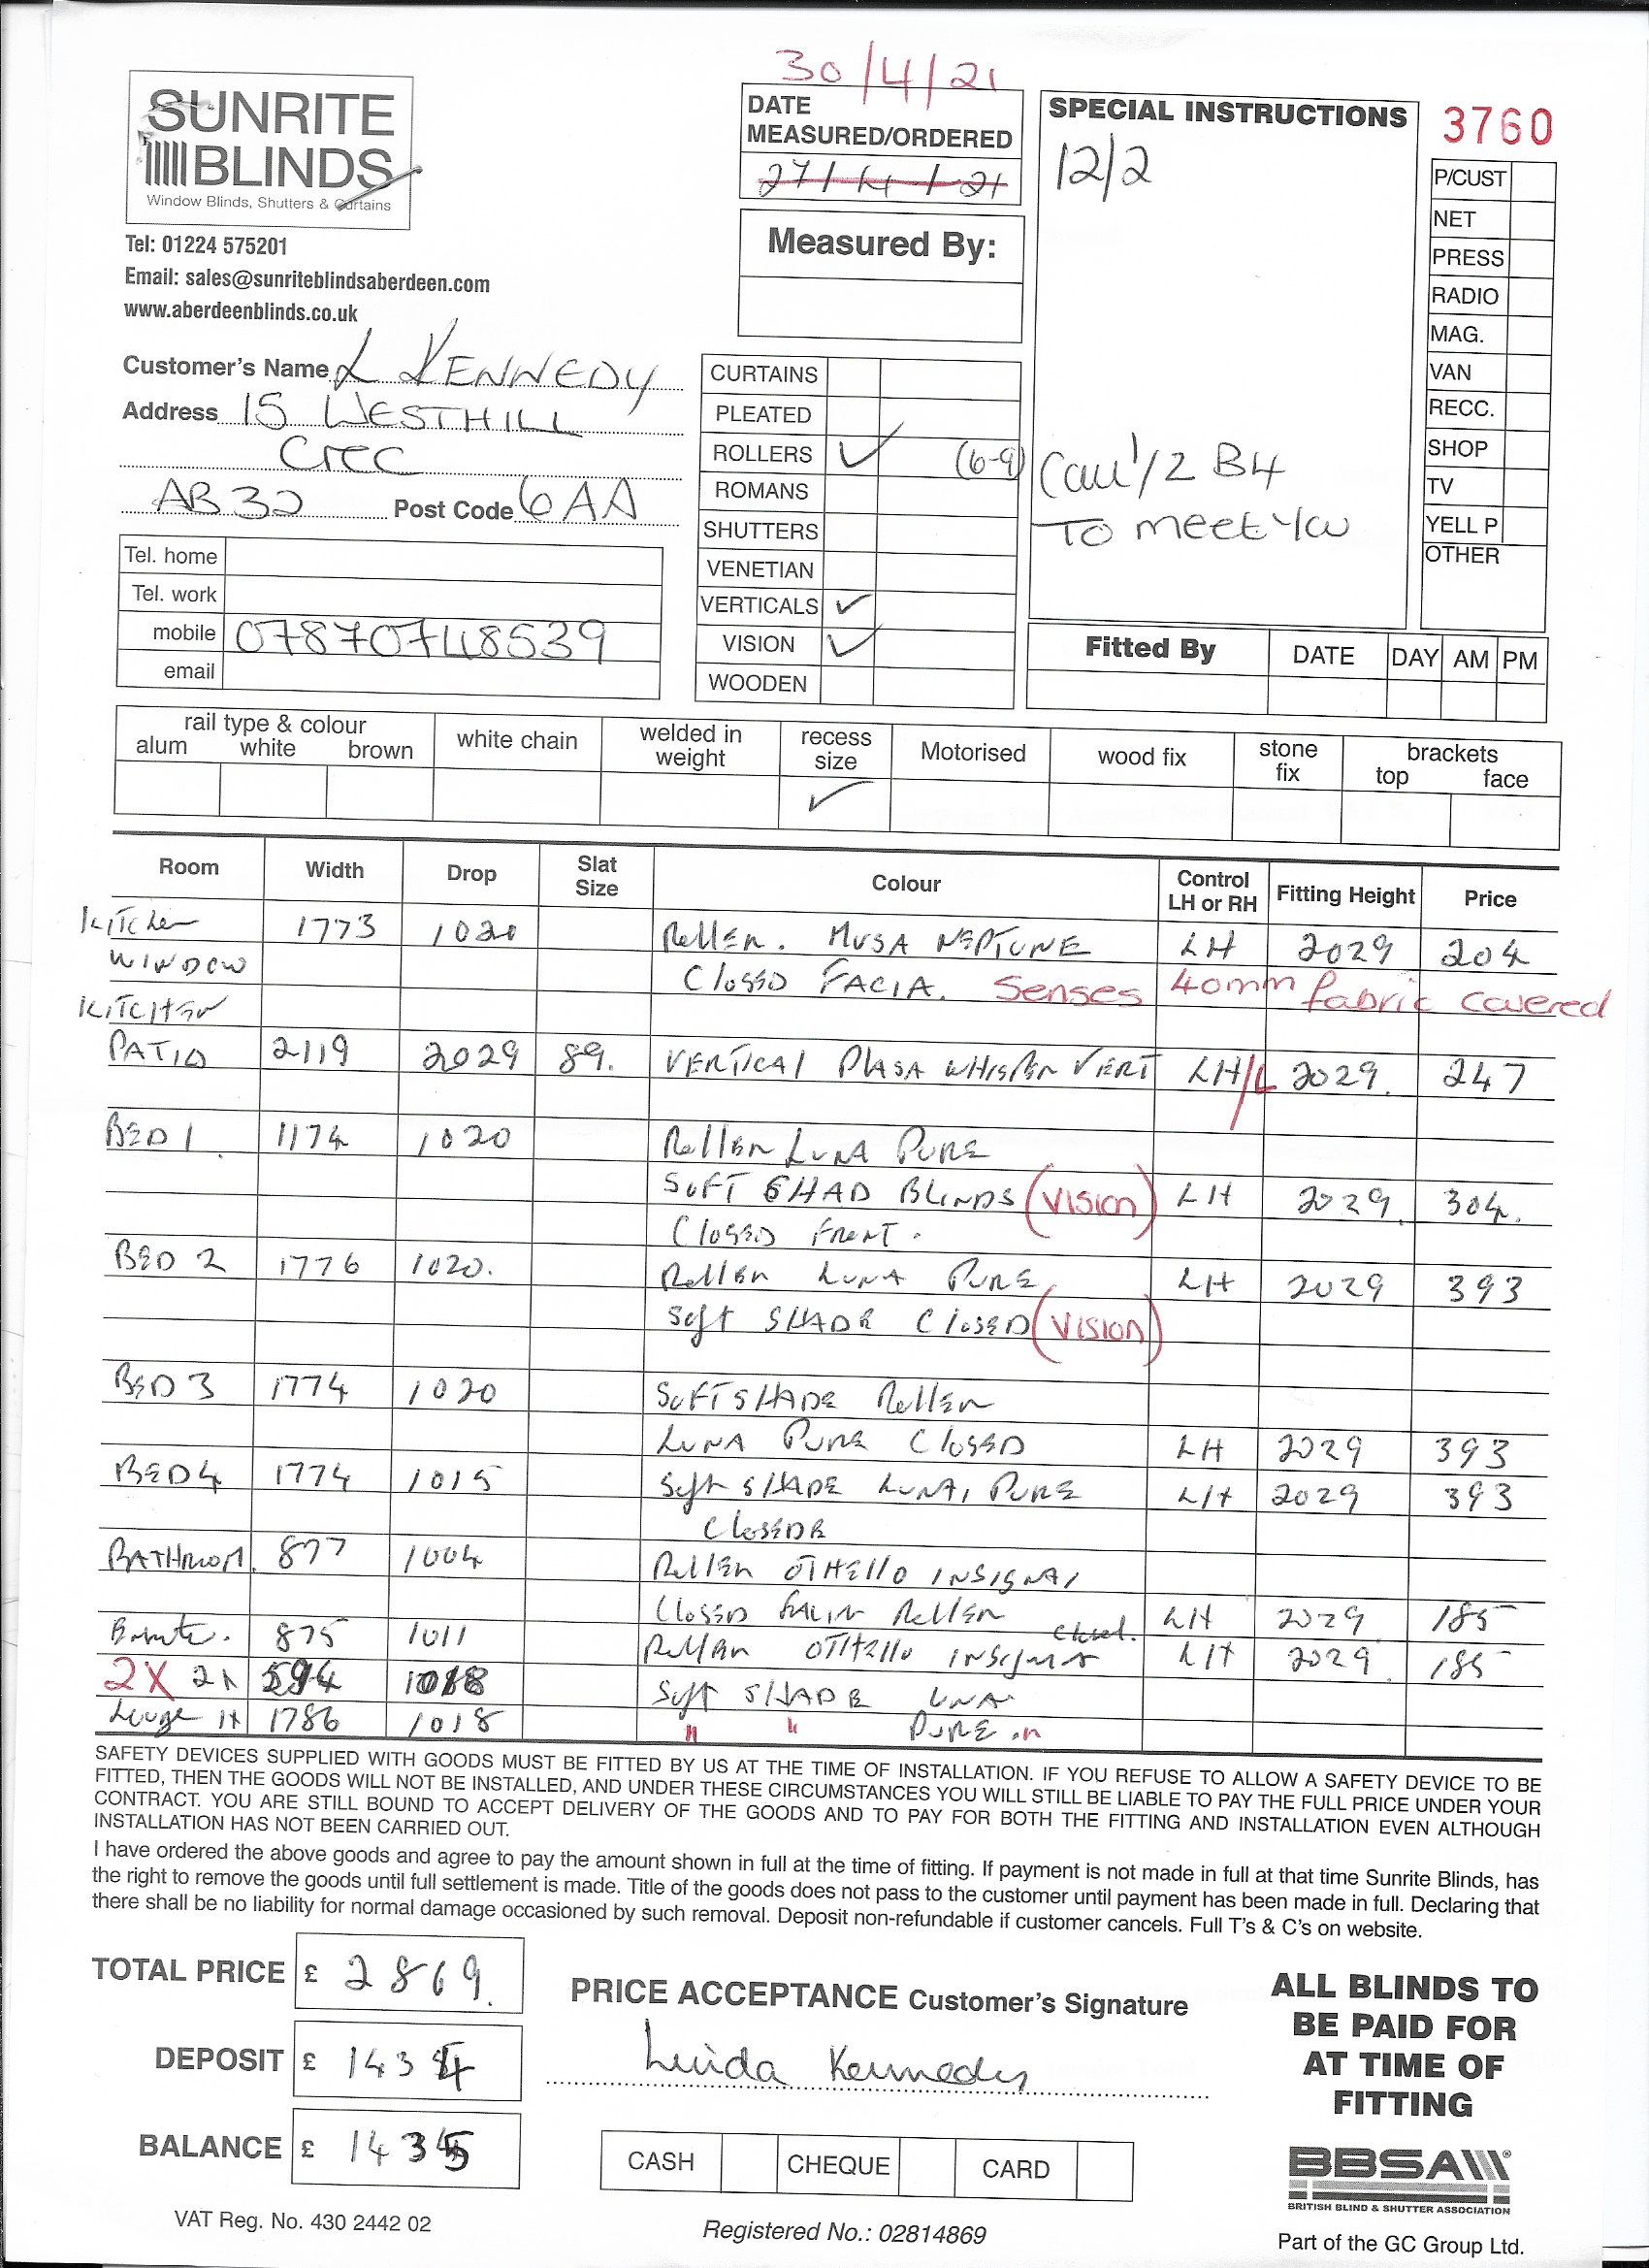 30/4/21
SUNRITE
BLINDS
Window Blinds, Shutters & Curtains
Tel: 01224 575201
Email: sales@sunriteblindsaberdeen.com
www.aberdeenblinds.co.uk
DATE
MEASURED/ORDERED
27/4/21
Measured By:
SPECIAL INSTRUCTIONS
12/2
(6-9) Call 1/2 B4
To meet You
3760
P/CUST
NET
PRESS
RADIO
MAG.
VAN
RECC.
SHOP
TV
YELL P
OTHER
Customer's Name L KENNEDY
Address 15 WESTHILL
CREC
AB32 Post Code 6AA
Tel. home
Tel. work
mobile 07870748539
email
CURTAINS
PLEATED
ROLLERS ✓
ROMANS
SHUTTERS
VENETIAN
VERTICALS ✓
VISION ✓
WOODEN
Fitted By DATE DAY AM PM
rail type & colour
alum white brown
white chain
welded in weight
recess size ✓
Motorised
wood fix
stone fix
brackets
top face
Room Width Drop Slat Size Colour Control LH or RH Fitting Height Price
Kitchen 1773 1020 Roller. MUSA NEPTUNE LH 2029 204
WINDOW CLOSED FACIA. Senses 40mm fabric covered
KITCHEN
PATIO 2119 2029 89. VERTICAL PLASA WHISPER VERT LH/L 2029 247
BED 1 1174 1020 Roller LUNA PURE
SOFT SHAD BLINDS (VISION) LH 2029 304.
CLOSED FRONT.
BED 2 1776 1020. Roller LUNA PURE LH 2029 393
Soft SHADE CLOSED (VISION)
BED 3 1774 1020 SOFT SHADE Roller
LUNA PURE CLOSED LH 2029 393
BED 4 1774 1015 Soft SHADE LUNA, PURE LH 2029 393
CLOSED
BATHROOM 877 1004 Roller OTHELLO INSIGNAI
CLOSED FACIA Roller LH 2029 185
875 1011 Roller OTHELLO INSIGNIA closed. LH 2029 185
2X 594 1018 Soft SHADE LUNA
Louge 1786 1018 " " PURE "
SAFETY DEVICES SUPPLIED WITH GOODS MUST BE FITTED BY US AT THE TIME OF INSTALLATION. IF YOU REFUSE TO ALLOW A SAFETY DEVICE TO BE
FITTED, THEN THE GOODS WILL NOT BE INSTALLED, AND UNDER THESE CIRCUMSTANCES YOU WILL STILL BE LIABLE TO PAY THE FULL PRICE UNDER YOUR
CONTRACT. YOU ARE STILL BOUND TO ACCEPT DELIVERY OF THE GOODS AND TO PAY FOR BOTH THE FITTING AND INSTALLATION EVEN ALTHOUGH
INSTALLATION HAS NOT BEEN CARRIED OUT.
I have ordered the above goods and agree to pay the amount shown in full at the time of fitting. If payment is not made in full at that time Sunrite Blinds, has
the right to remove the goods until full settlement is made. Title of the goods does not pass to the customer until payment has been made in full. Declaring that
there shall be no liability for normal damage occasioned by such removal. Deposit non-refundable if customer cancels. Full T's & C's on website.
TOTAL PRICE £ 2869.
DEPOSIT £ 1434
BALANCE £ 1435
PRICE ACCEPTANCE Customer's Signature
Linda Kennedy
CASH CHEQUE CARD
ALL BLINDS TO
BE PAID FOR
AT TIME OF
FITTING
BBSA
BRITISH BLIND & SHUTTER ASSOCIATION
VAT Reg. No. 430 2442 02
Registered No.: 02814869
Part of the GC Group Ltd.